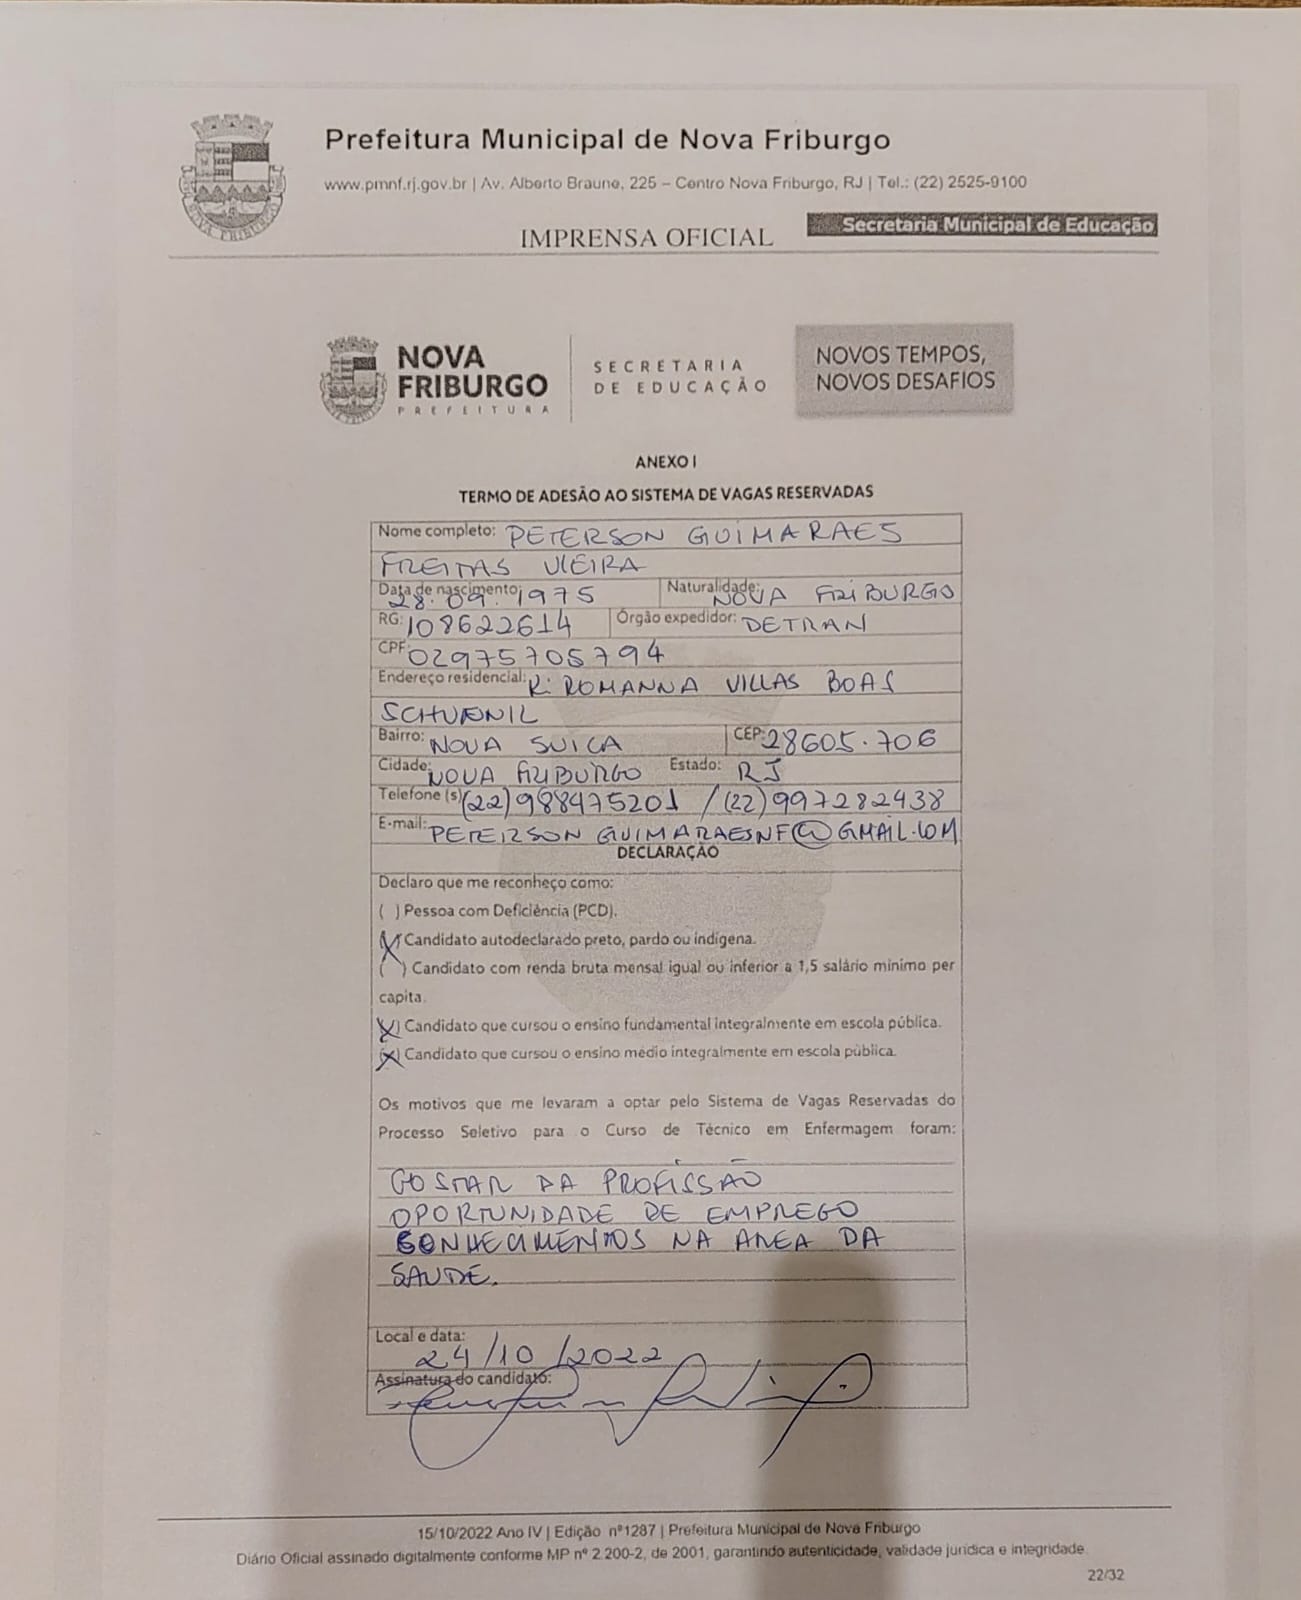 Prefeitura Municipal de Nova Friburgo
www.pmnf.rj.gov.br | Av. Alberto Braune, 225 – Centro Nova Friburgo, RJ | Tel.: (22) 2525-9100
IMPRENSA OFICIAL
Secretaria Municipal de Educação
NOVA
FRIBURGO
PREFEITURA
SECRETARIA
DE EDUCAÇÃO
NOVOS TEMPOS,
NOVOS DESAFIOS
ANEXO I
TERMO DE ADESÃO AO SISTEMA DE VAGAS RESERVADAS
Nome completo: PETERSON GUIMARAES
FREITAS VIEIRA
Data de nascimento: 28.09.1975 Naturalidade: NOVA FRIBURGO
RG: 108622614 Órgão expedidor: DETRAN
CPF: 029757057 94
Endereço residencial: R: ROMANNA VILLAS BOAS
Bairro: NOVA SUICA CEP: 28605.706
Cidade: NOVA FRIBURGO Estado: RJ
Telefone (s) (22) 988475201 / (22) 997282438
E-mail: PETERSON GUIMARAESNF@GMAIL.COM
DECLARAÇÃO
Declaro que me reconheço como:
( ) Pessoa com Deficiência (PCD).
(X) Candidato autodeclarado preto, pardo ou indígena.
( ) Candidato com renda bruta mensal igual ou inferior a 1,5 salário mínimo per
capita.
(X) Candidato que cursou o ensino fundamental integralmente em escola pública.
(X) Candidato que cursou o ensino médio integralmente em escola pública.
Os motivos que me levaram a optar pelo Sistema de Vagas Reservadas do
Processo Seletivo para o Curso de Técnico em Enfermagem foram:
GOSTAR DA PROFISSÃO
OPORTUNIDADE DE EMPREGO
CONHECIMENTOS NA AREA DA
SAUDE.
Local e data:
24/10/2022
Assinatura do candidato:
15/10/2022 Ano IV | Edição nº1287 | Prefeitura Municipal de Nova Friburgo
Diário Oficial assinado digitalmente conforme MP nº 2.200-2, de 2001, garantindo autenticidade, validade jurídica e integridade.
22/32